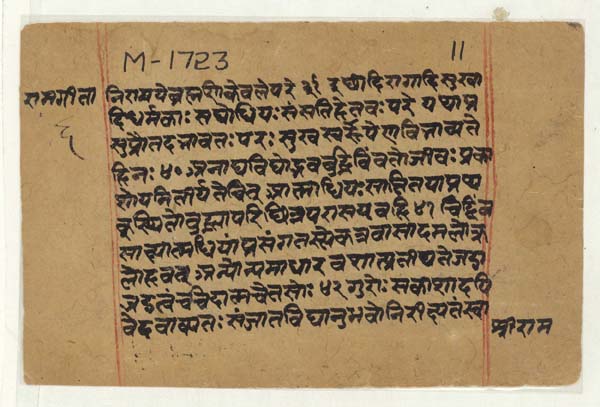 M-1723
11
रामगीता
६
निरामयेब्रह्मणिकेवलेपरे ३९ इच्छादिरागादिसुखा
दिधर्मिकाः सदाधियः संसृतिहेतवः परे यस्मात्प्र
सुप्तौतदभावतः परः सुखस्वरूपेणविभाव्यते
हिनः ४० अनाद्यविद्योद्भवबुद्धिबिंबतोजीवः प्रका
शोयमितीर्यतेचित् आत्माधियः साक्षितयापृथ
क्स्थितोबुद्ध्यापरिछिन्नपरासयवहि ४१ चिद्बिंब
साक्ष्यात्मधियांप्रसंगतस्त्वेकत्रवासादनलाक्त
लोहवत् अन्योन्यमाधारवशात्प्रतीयतेजडा
जडत्वंचचिदात्मचेतसोः ४२ गुरोः सकाशादपि
वेदवाक्यतः संजातविद्यानुभवोनिरीक्ष्यतंस्वा
श्रीराम